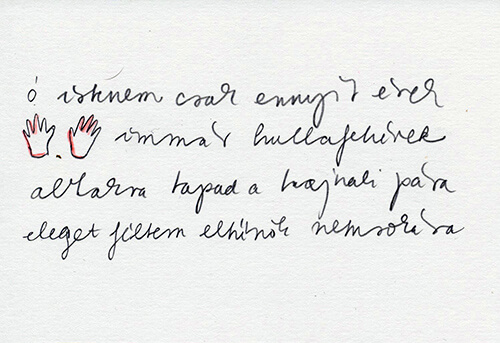 ó istenem csak ennyit érek
immár hullafehérek
ablakra tapad a hajnali pára
eleget féltem eltűnök nemsokára